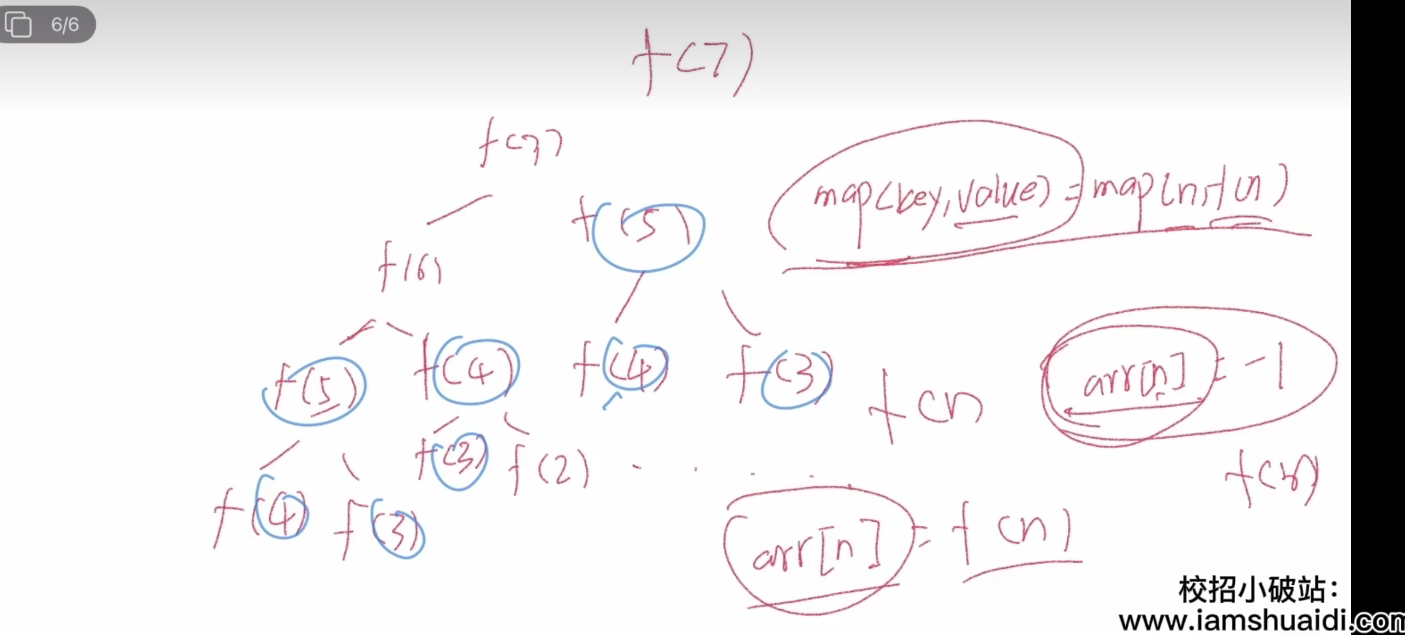 6/6
f(7)
f(7)
map(key,value)=map(n,f(n)
f(5)
f(6)
f(5) f(4) f(4) f(3)
arr[n] = -1
f(n
f(3) f(2) . . . . .
f(n)
f(4) f(3)
arr[n] = f(n)
校招小破站：
www.iamshuaidi.com